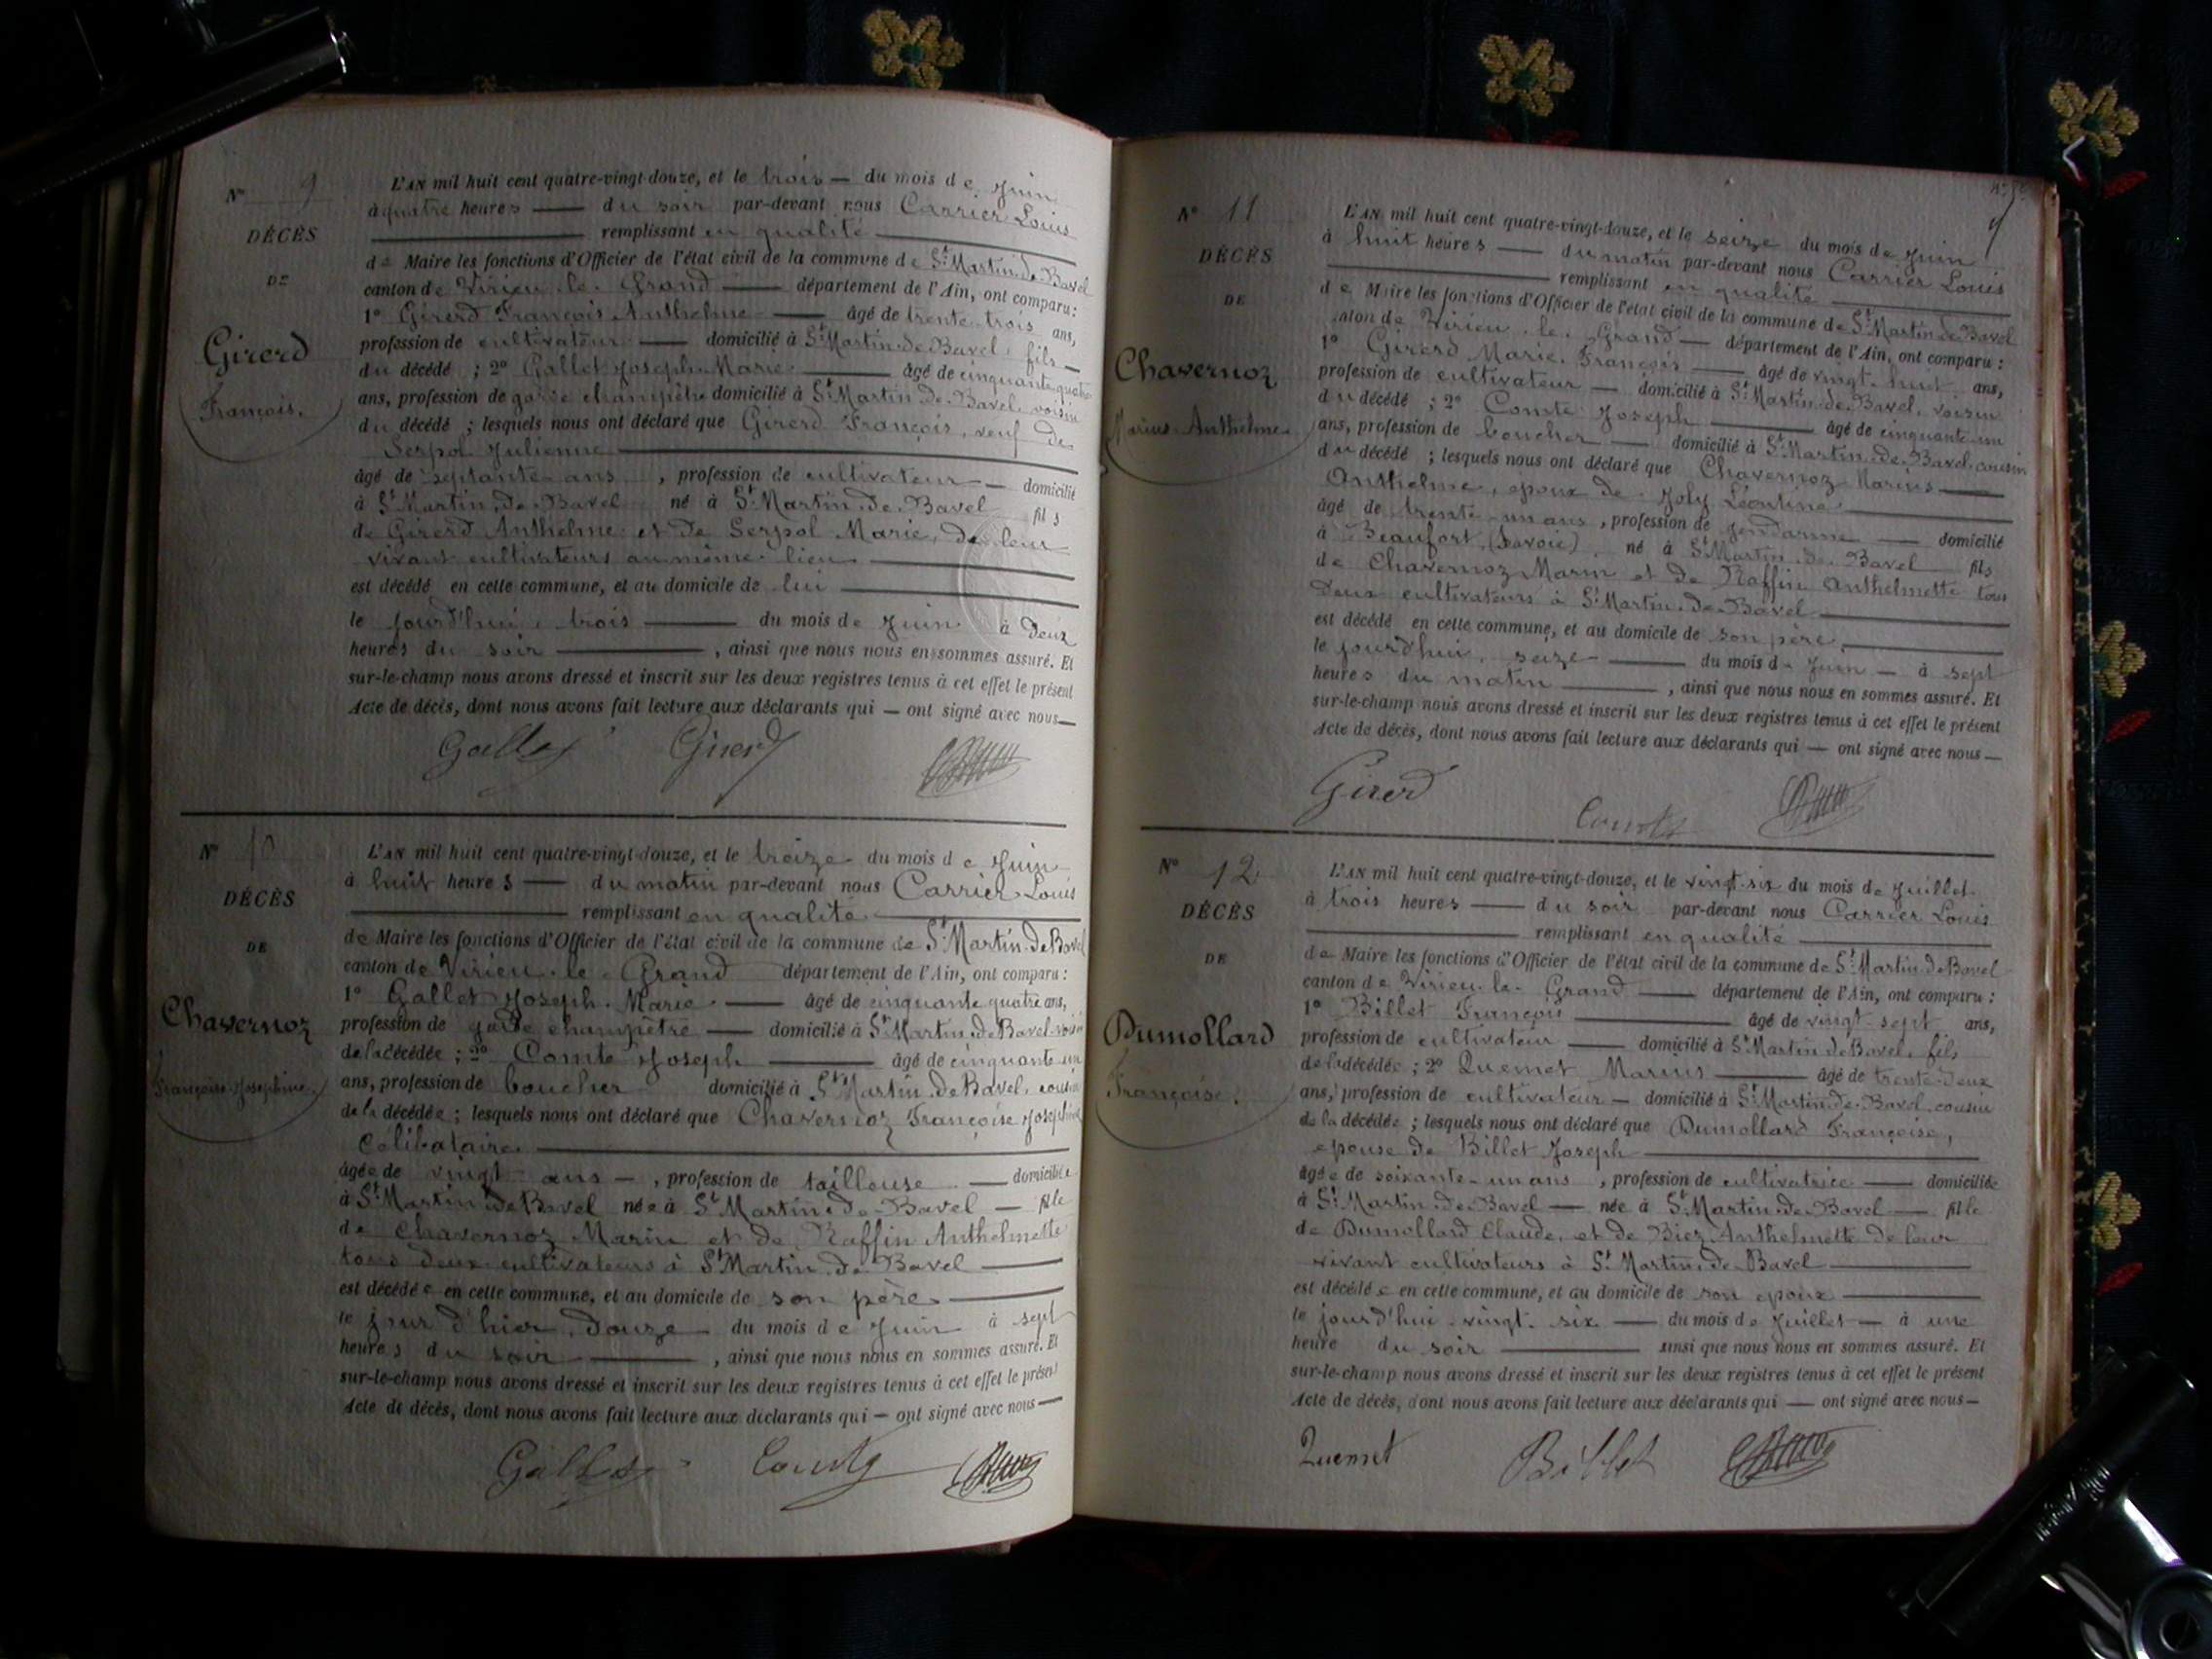 N° 9
DÉCÈS
DE
Girerd
François.
L'AN mil huit cent quatre-vingt-douze, et le trois — du mois de Juin
à quatre heures — du soir par-devant nous Carrier Louis
remplissant en qualité
de Maire les fonctions d'Officier de l'état civil de la commune de St Martin de Bavel
canton de Virieu-le-Grand — département de l'Ain, ont comparu :
1° Girerd François Anthelme — âgé de trente-trois ans,
profession de cultivateur — domicilié à St Martin-de-Bavel, fils —
du décédé ; 2° Gallet Joseph-Marie — âgé de cinquante-quatre
ans, profession de garde champêtre domicilié à St Martin-de-Bavel, voisin
du décédé ; lesquels nous ont déclaré que Girerd François, veuf de
Serpol Julienne
âgé de septante ans, profession de cultivateur — domicilié
à St Martin-de-Bavel né à St Martin-de-Bavel fils
de Girerd Anthelme et de Serpol Marie, de leur
vivant cultivateurs au même lieu
est décédé en cette commune, et au domicile de lui
le jourd'hui, trois — du mois de Juin à deux
heures du soir —, ainsi que nous nous en sommes assuré. Et
sur-le-champ nous avons dressé et inscrit sur les deux registres tenus à cet effet le présent
Acte de décès, dont nous avons fait lecture aux déclarants qui — ont signé avec nous —
Gallet Girerd
N° 10
DÉCÈS
DE
Chavernoz
Françoise-Josephine.
L'AN mil huit cent quatre-vingt-douze, et le treize du mois de Juin
à huit heures — du matin par-devant nous Carrier Louis
remplissant en qualité
de Maire les fonctions d'Officier de l'état civil de la commune de St Martin-de Bavel
canton de Virieu-le-Grand département de l'Ain, ont comparu :
1° Gallet Joseph-Marie — âgé de cinquante quatre ans,
profession de garde champêtre — domicilié à St Martin-de Bavel-voisin
de la décédée ; 2° Comte Joseph — âgé de cinquante-un
ans, profession de boucher domicilié à St Martin-de Bavel, cousin
de la décédée ; lesquels nous ont déclaré que Chavernoz Françoise Josephine
Célibataire
âgée de vingt ans —, profession de tailleuse — domiciliée
à St Martin de Bavel née à St Martin-de-Bavel — fille
de Chavernoz Marin et de Raffin Anthelmette
tous deux cultivateurs à St Martin-de Bavel —
est décédée en cette commune, et au domicile de son père
le jour d'hier, douze du mois de Juin à sept
heures du soir —, ainsi que nous nous en sommes assuré. Et
sur-le-champ nous avons dressé et inscrit sur les deux registres tenus à cet effet le présent
Acte de décès, dont nous avons fait lecture aux déclarants qui — ont signé avec nous —
Gallet Comte
N° 11
DÉCÈS
DE
Chavernoz
Marius-Anthelme
L'AN mil huit cent quatre-vingt-douze, et le seize du mois de Juin
à huit heures — du matin par-devant nous Carrier Louis
remplissant en qualité
de Maire les fonctions d'Officier de l'état civil de la commune de St Martin de Bavel
canton de Virieu-le-Grand — département de l'Ain, ont comparu :
1° Girerd Marie-François — âgé de vingt-huit ans,
profession de cultivateur — domicilié à St Martin-de-Bavel, voisin
du décédé ; 2° Comte Joseph — âgé de cinquante-un
ans, profession de boucher — domicilié à St Martin-de-Bavel, cousin
du décédé ; lesquels nous ont déclaré que Chavernoz Marius —
Anthelme, époux de Joly Léontine
âgé de trente-un ans, profession de gendarme — domicilié
à Beaufort, (Savoie), né à St Martin-de-Bavel fils
de Chavernoz Marin et de Raffin Anthelmette tous
deux cultivateurs à St Martin-de-Bavel
est décédé en cette commune, et au domicile de son père,
le jourd'hui, seize — du mois de Juin — à sept
heures du matin —, ainsi que nous nous en sommes assuré. Et
sur-le-champ nous avons dressé et inscrit sur les deux registres tenus à cet effet le présent
Acte de décès, dont nous avons fait lecture aux déclarants qui — ont signé avec nous —
Girerd Comte
N° 12
DÉCÈS
DE
Dumollard
Françoise.
L'AN mil huit cent quatre-vingt-douze, et le vingt-six du mois de Juillet
à trois heures — du soir par-devant nous Carrier Louis
remplissant en qualité
de Maire les fonctions d'Officier de l'état civil de la commune de St Martin de Bavel
canton de Virieu-le-Grand — département de l'Ain, ont comparu :
1° Billet François — âgé de vingt-sept ans,
profession de cultivateur — domicilié à St Martin de Bavel, fils
de la décédée ; 2° Quemet Marius — âgé de trente-deux
ans, profession de cultivateur — domicilié à St Martin-de-Bavel, cousin
de la décédée ; lesquels nous ont déclaré que Dumollard Françoise,
épouse de Billet Joseph
âgée de soixante-un ans, profession de cultivatrice — domiciliée
à St Martin-de-Bavel — née à St Martin-de-Bavel — fille
de Dumollard Claude, et de Biez Anthelmette de leur
vivant cultivateurs à St Martin-de-Bavel
est décédée en cette commune, et au domicile de son époux
le jourd'hui vingt-six — du mois de Juillet — à une
heure du soir — ainsi que nous nous en sommes assuré. Et
sur-le-champ nous avons dressé et inscrit sur les deux registres tenus à cet effet le présent
Acte de décès, dont nous avons fait lecture aux déclarants qui — ont signé avec nous —
Quemet Billet